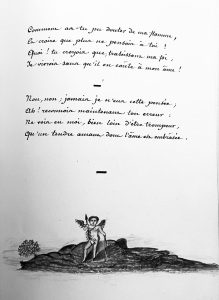 Comment as-tu pu douter de ma flamme,
Et croire que plus ne pensois à toi !
Quoi ! tu croyois que, trahissant ma foi,
Je vivrois sans qu'il en coûte à mon âme !
Non, non ; jamais je n'eus cette pensée,
Ah ! reconnois maintenant ton erreur :
Ne vois en moi, bien loin d'être trompeur,
Qu'un tendre amant dont l'âme est embrâsée.